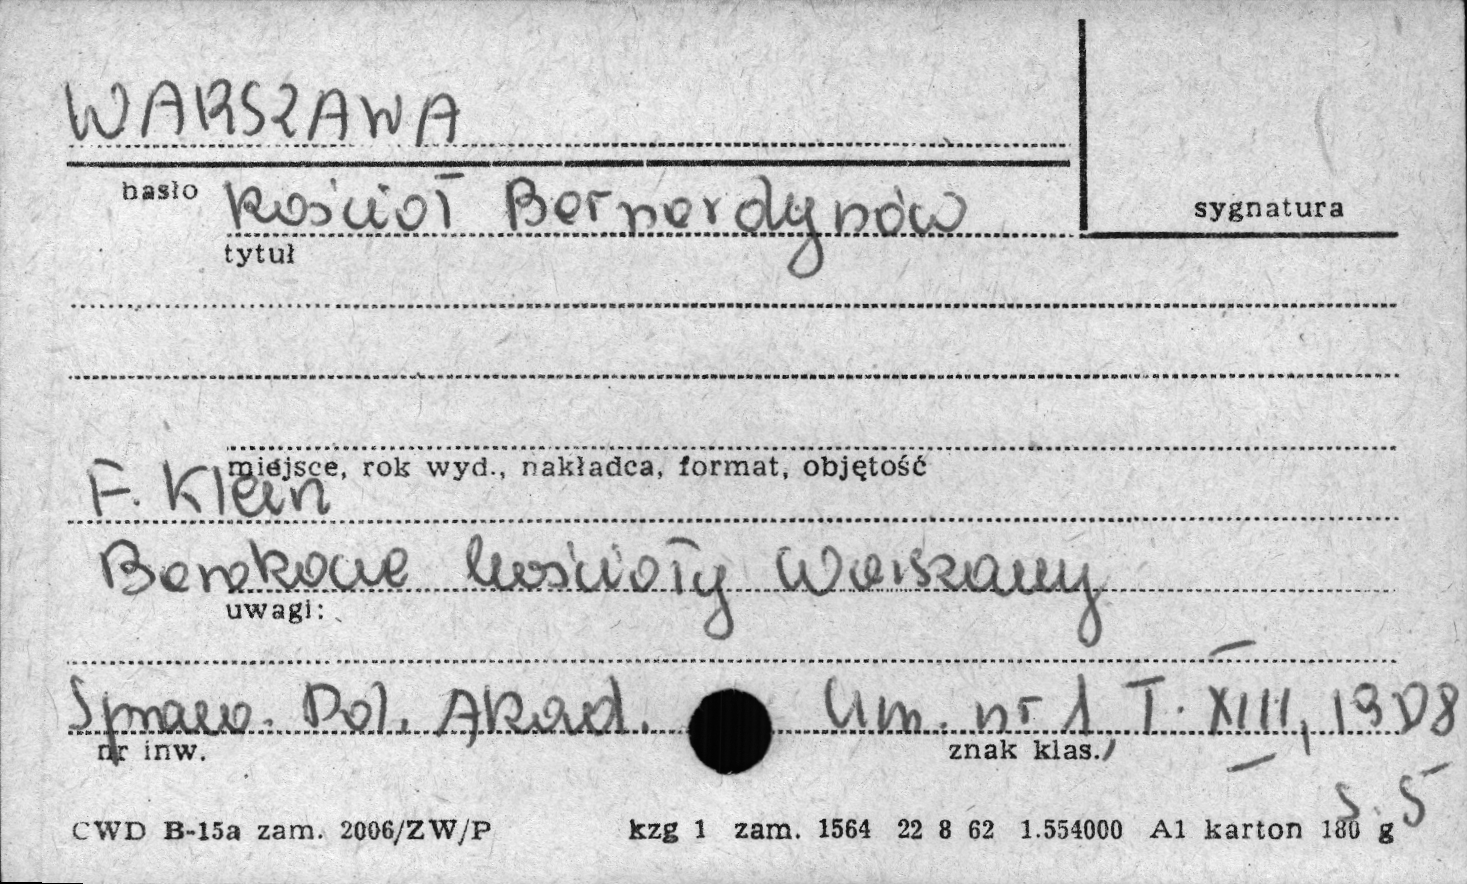 WARSZAWA
hasło kościoł Bernardynów
sygnatura
tytuł
miejsce, rok wyd., nakładca, format, objętość
F. Klein
Barokowe kościoły Warszawy
uwagi:
Spraw. Pol. Akad. Um. nr 1 T. XIII, 1908
nr inw. znak klas.
s. 5
CWD B-15a zam. 2006/ZW/P kzg 1 zam. 1564 22 8 62 1.554000 A1 karton 180 g